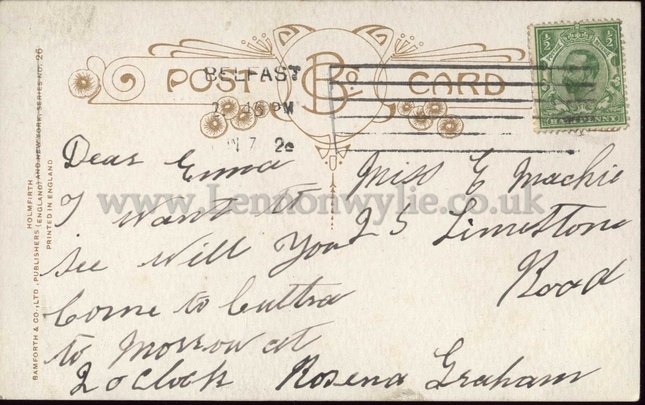 POST CARD
B Co
BELFAST
PM
7
HALFPENNY
Dear Emma
I want to
see Will You
Come to Cultra
to Morrow at
2 oClock
Rosena Graham
Miss E Mackie
25 Limestone
Road
www.Lennonwylie.co.uk
BAMFORTH & CO., LTD., PUBLISHERS (ENGLAND) AND NEW YORK, SERIES NO. 26
HOLMFIRTH
PRINTED IN ENGLAND